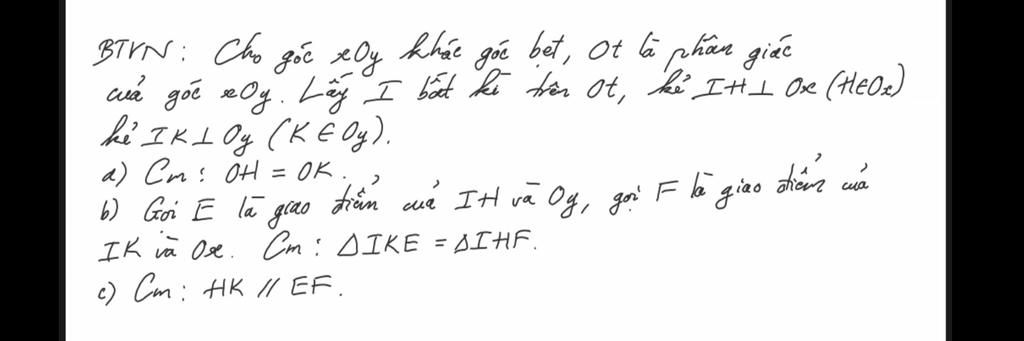 BTVN: Cho góc xOy khác góc bẹt, Ot là phân giác
của góc xOy. Lấy I bất kì trên Ot, kẻ IH⊥ Ox (H∈Ox)
kẻ IK⊥ Oy (K ∈ Oy).
a) Cm: OH = OK.
b) Gọi E là giao điểm của IH và Oy, gọi F là giao điểm của
IK và Ox. Cm: ΔIKE = ΔIHF.
c) Cm: HK // EF.